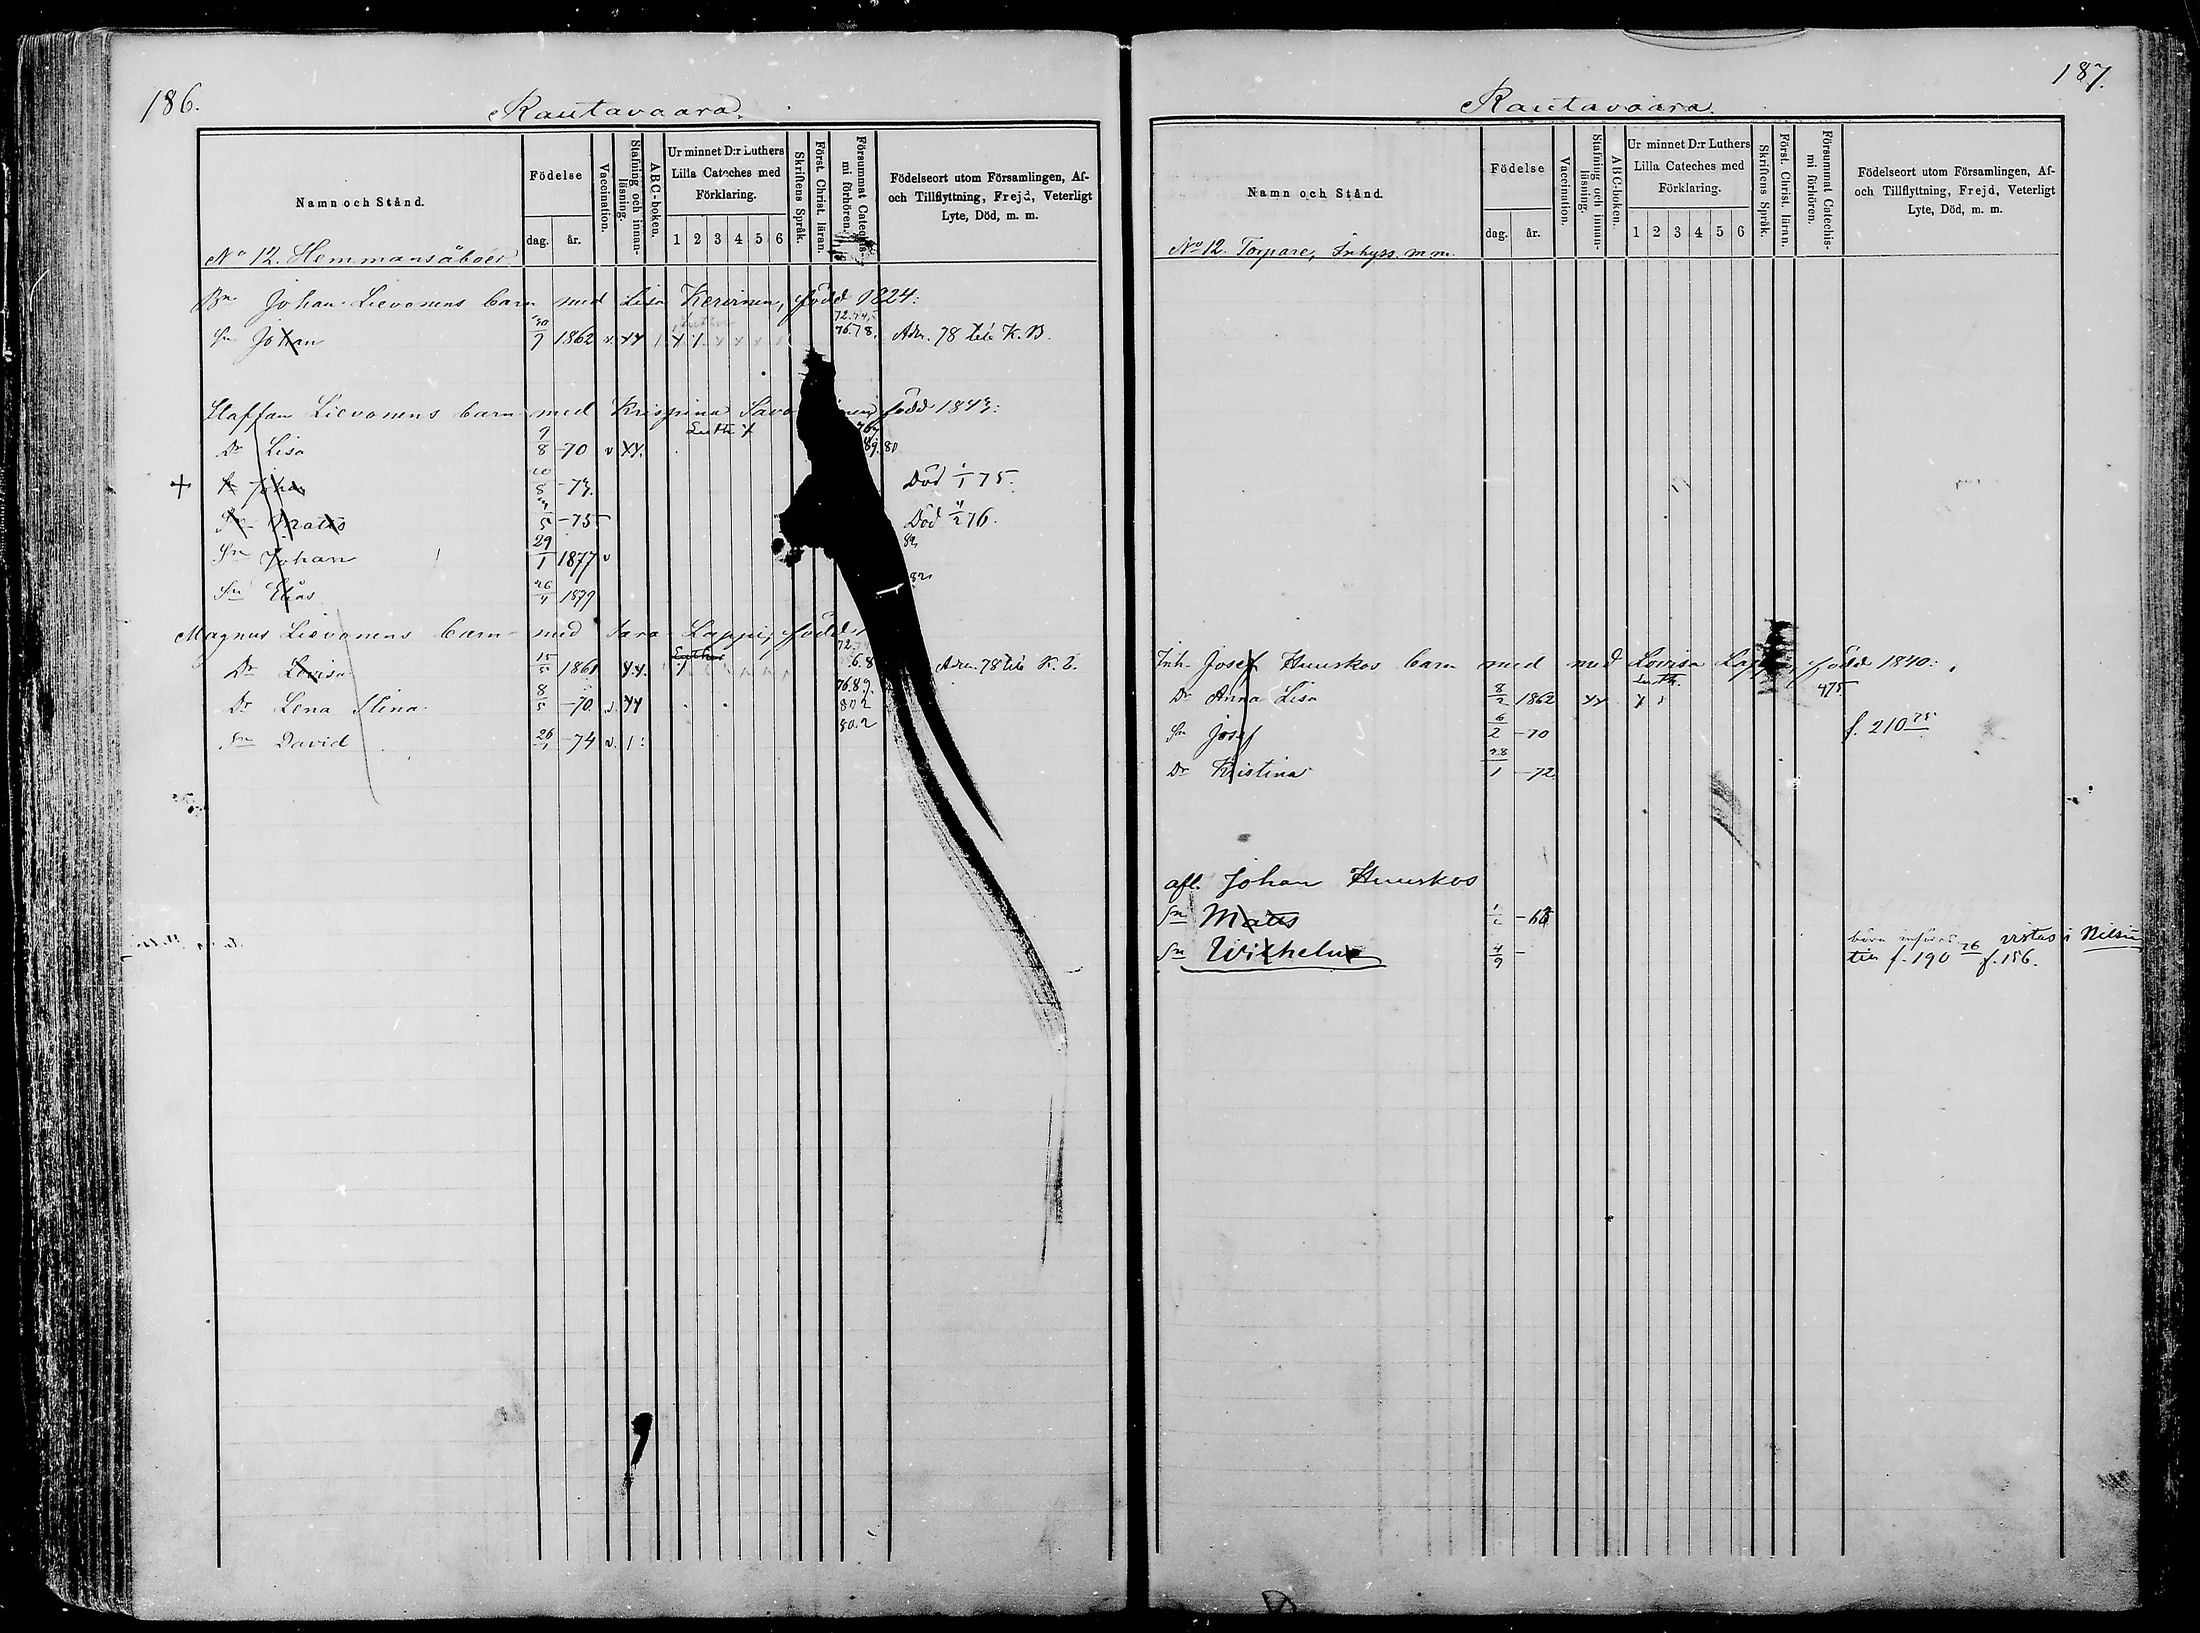 186.
Rautavaara.
Namn och Stånd.
Födelse
dag.
år.
Vaccination.
Stafning och innan-
läsning.
ABC-boken.
Ur minnet D:r Luthers
Lilla Cateches med
Förklaring.
1 2 3 4 5 6
Skriftens Språk.
Först. Christ. läran.
Försummat Catechis-
mi förhören.
Födelseort utom Församlingen, Af-
och Tillflyttning, Frejd, Veterligt
Lyte, Död, m. m.
No 12. Hemmansåboer
Bn. Johan Lievonens barn med Lisa Kervinen, född 1824:
72.74,
Sn Johan 30/9 1862 v. xx 76.78. Adm. 78 till K. B.
Staffan Lievonens barn med Krispina Savo född 1843:
Luth x
Dr Lisa 9/8 -70 v xx. 89.80
+ Sn Johan 20/8 -73. Död 1/1 75.
Sn Matts /5 -75 Död 4/2 76.
Sn Johan 29/1 1877 v 82
Sn Elias 26/4 1879 82
Magnus Lievonens barn med Sara Lappi, född
Luther
Dr Lovisa 15/5 1861 x.x. Adm. 78 till K. B.
Dr Lena Stina 8/5 -70. v. xx 76.89. 80 2
Sn David 26/ -74 v. 1: 80.2
187.
Rautavaara.
Namn och Stånd.
Födelse
dag.
år.
Vaccination.
Stafning och innan-
läsning.
ABC-boken.
Ur minnet D:r Luthers
Lilla Cateches med
Förklaring.
1 2 3 4 5 6
Skriftens Språk.
Först. Christ. läran.
Försummat Catechis-
mi förhören.
Födelseort utom Församlingen, Af-
och Tillflyttning, Frejd, Veterligt
Lyte, Död, m. m.
No 12. Torpare, Inhyss. m m.
Inh. Josef Huuskos barn med med Lovisa född 1840:
Luth.
Dr Anna Lisa 8/2 1862 xx 475
Sn Josef 6/2 -70 f. 210 75
Dr Kristina 28/1 -72
afl. Johan Huuskos
Sn Matts
Sn Wilhelm 4/9 -
vistas i Nilsiä
till f. 190 76 f. 156.